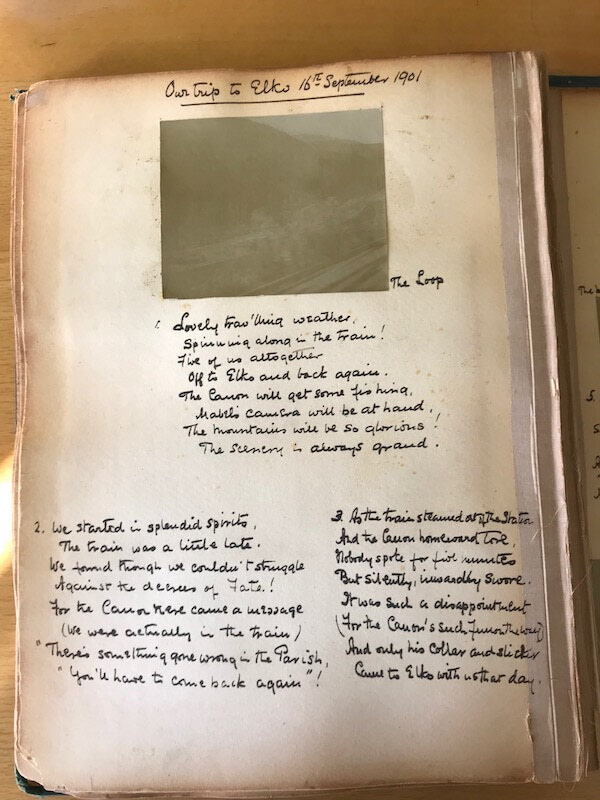 Our trip to Elko 16th September 1901
The Loop
1. Lovely trav'lling weather,
Spinning along in the train!
Five of us altogether
Off to Elko and back again.
The Canon will get some fishing,
Mabel's camera will be at hand,
The mountains will be so glorious!
The scenery is always grand.
2. We started in splendid spirits,
The train was a little late.
We found though we couldn't struggle
Against the decrees of Fate!
For the Canon there came a message
(We were actually in the train)
"There's something gone wrong in the Parish,
"You'll have to come back again"!
3. As the train steamed out of the Station
And the Canon homeward tore,
Nobody spoke for five minutes
But silently, inwardly swore.
It was such a disappointment
(For the Canon's such fun on the way)
And only his collar and slicker
Came to Elko with us that day.
The
5.